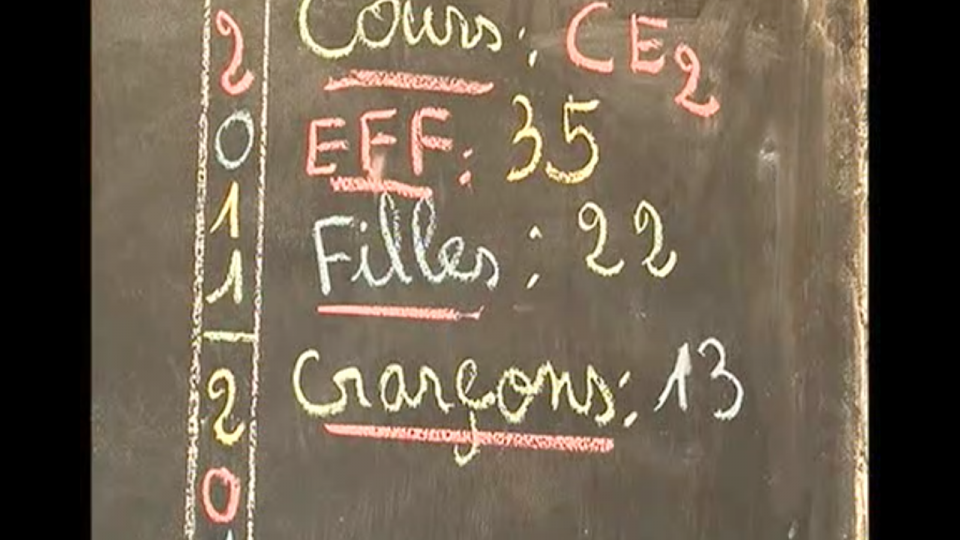 2
0
1
1
-
2
0
Cours : CE2
EFF : 35
Filles : 22
Garçons : 13